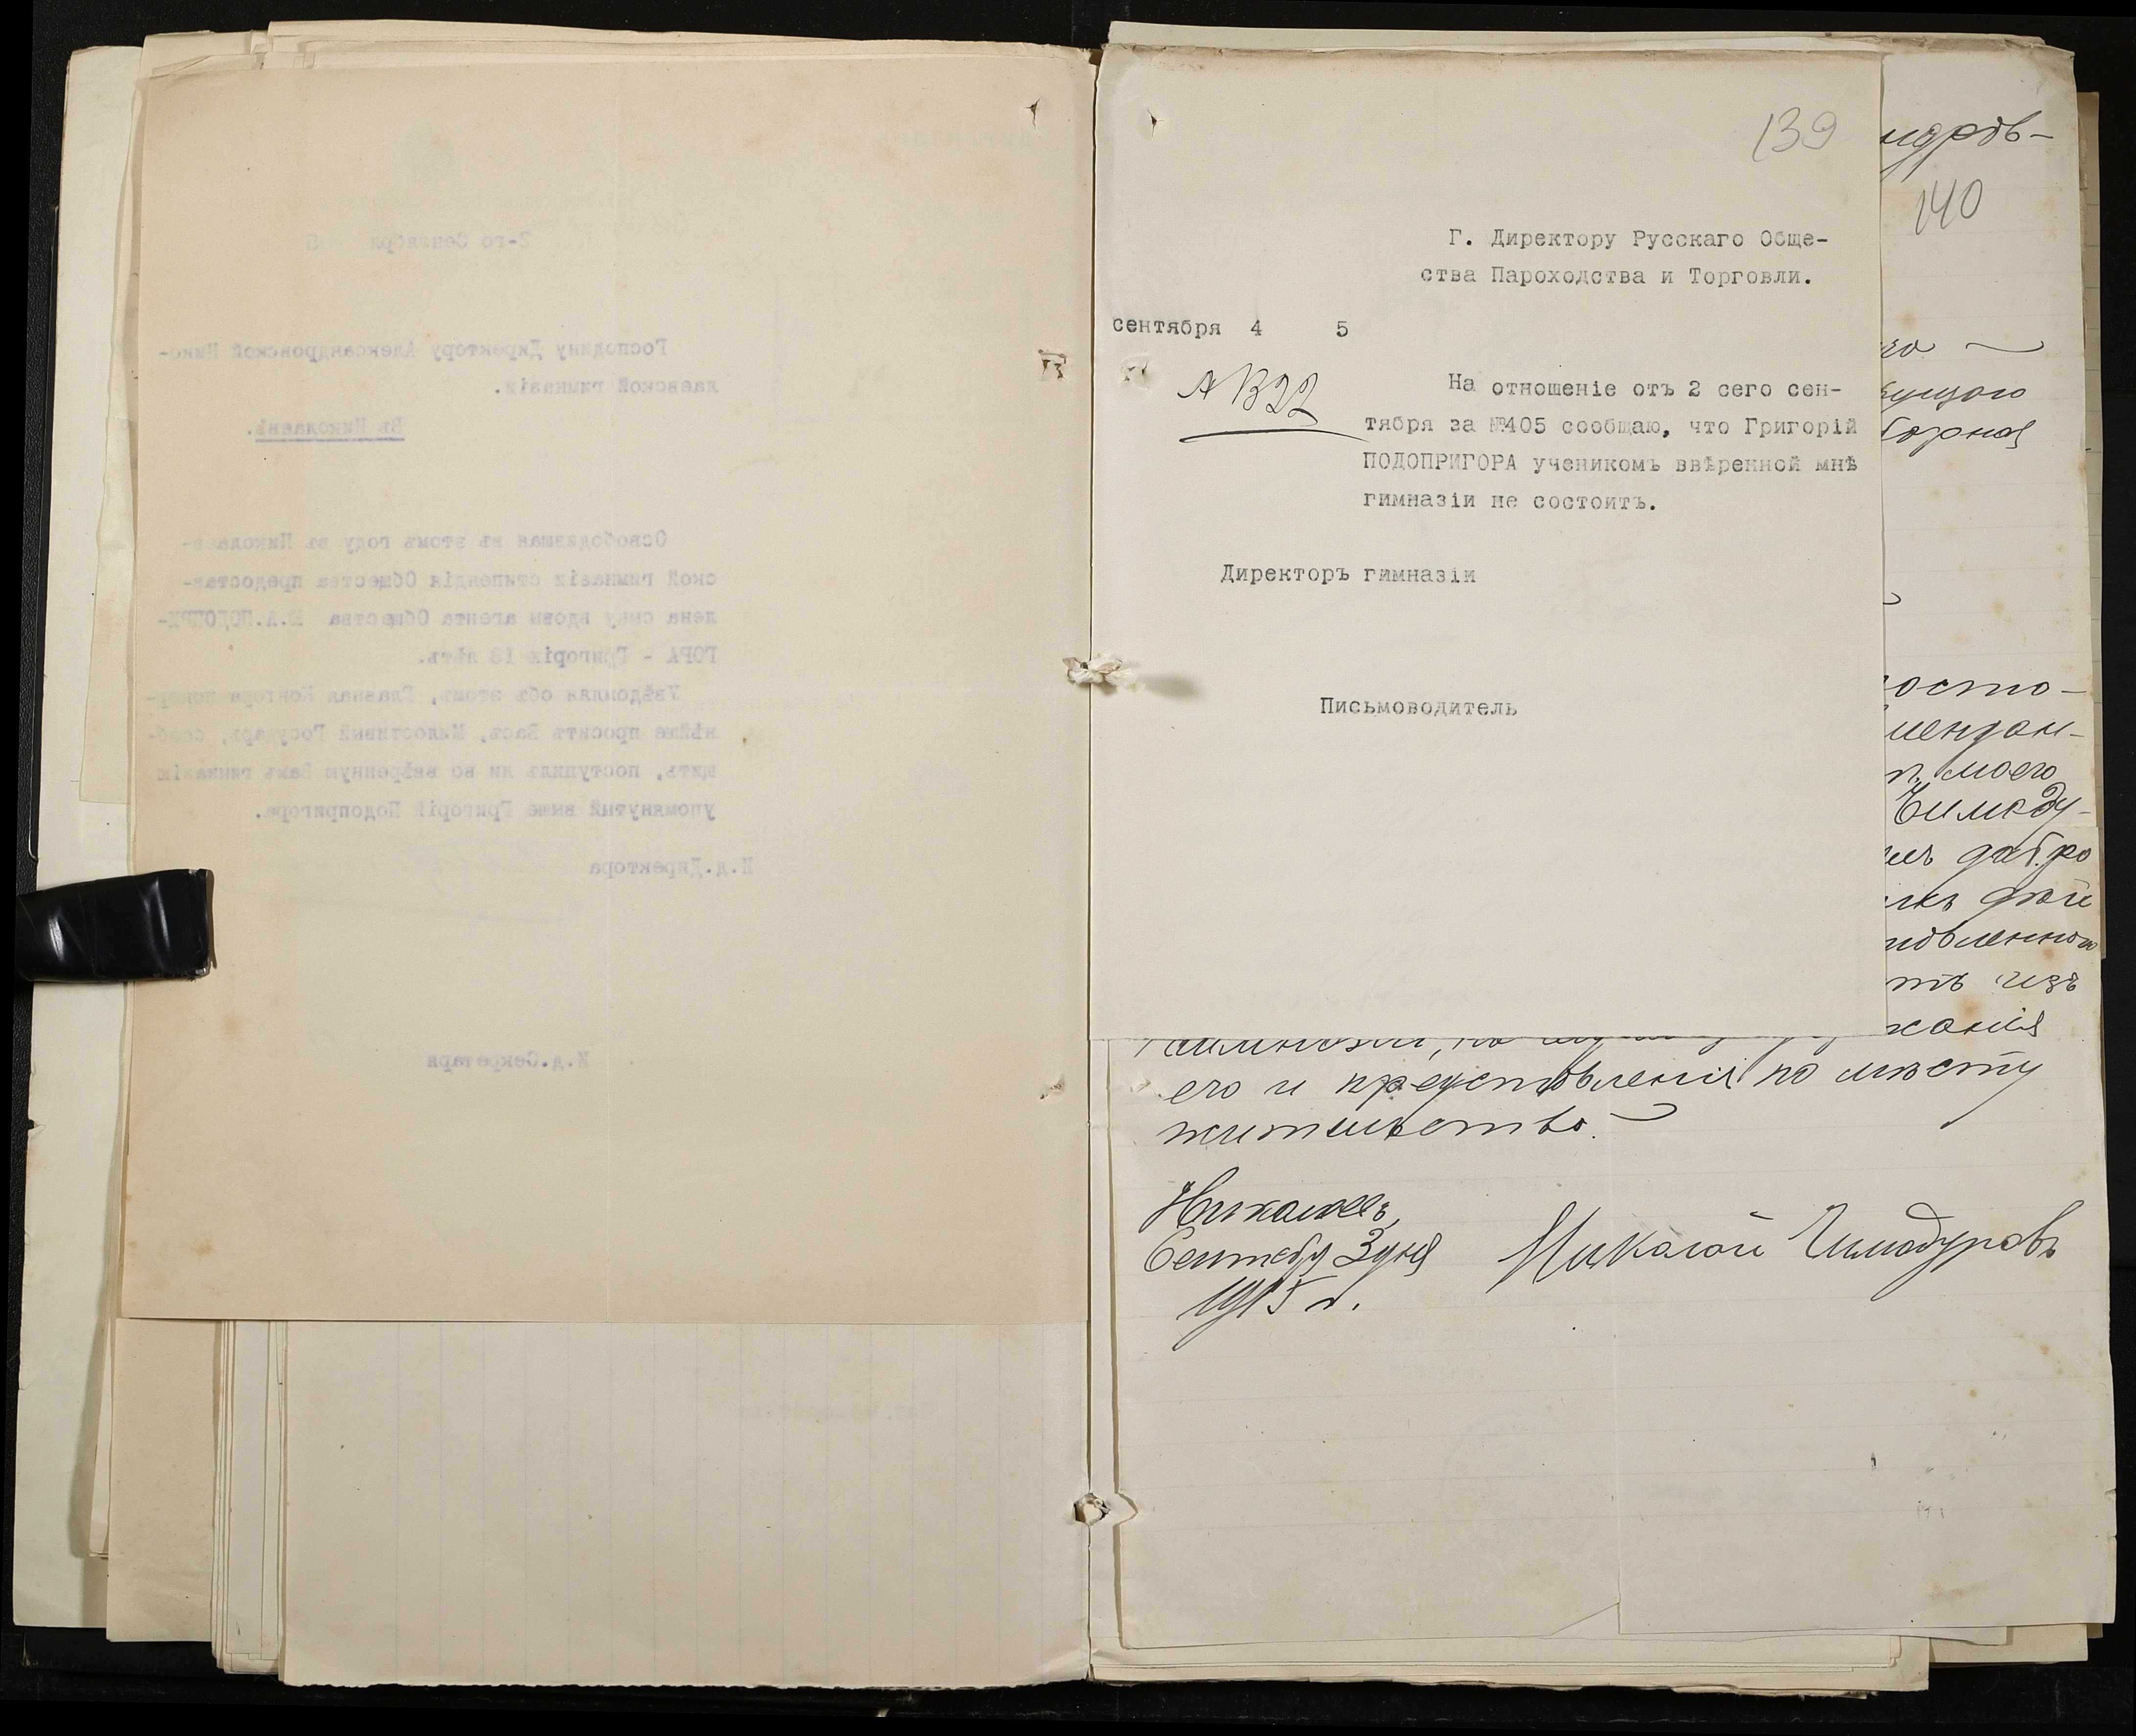 2-го Сентября 5
Господину Директору Александровской Нико-
лаевской гимназіи.
Въ Николаевѣ.
Освободившая въ этомъ году въ Николаев-
ской гимназіи стипендія Общества предостав-
лена сыну вдовы агента Общества Ю.А.ПОДОПРИ-
ГОРА - Григорію 13 лѣтъ.
Увѣдомляя объ этомъ, Главная Контора покор-
нѣйше проситъ Васъ, Милостивый Государь, сооб-
щить, поступилъ ли во ввѣренную Вамъ гимназію
упомянутый выше Григорій Подопригора.
И.д.Директора
И.д.Секретаря
139
Г. Директору Русскаго Обще-
ства Пароходства и Торговли.
сентября 4 5
На отношеніе отъ 2 сего сен-
тября за №405 сообщаю, что Григорій
ПОДОПРИГОРА ученикомъ ввѣренной мнѣ
гимназіи не состоитъ.
Директоръ гимназіи
Письмоводитель
140
моего
изъ
его и представленія по мѣсту
жительства.
Николаевъ,
Сентября 3 дня
1915 г.
Николай Чимодуровъ